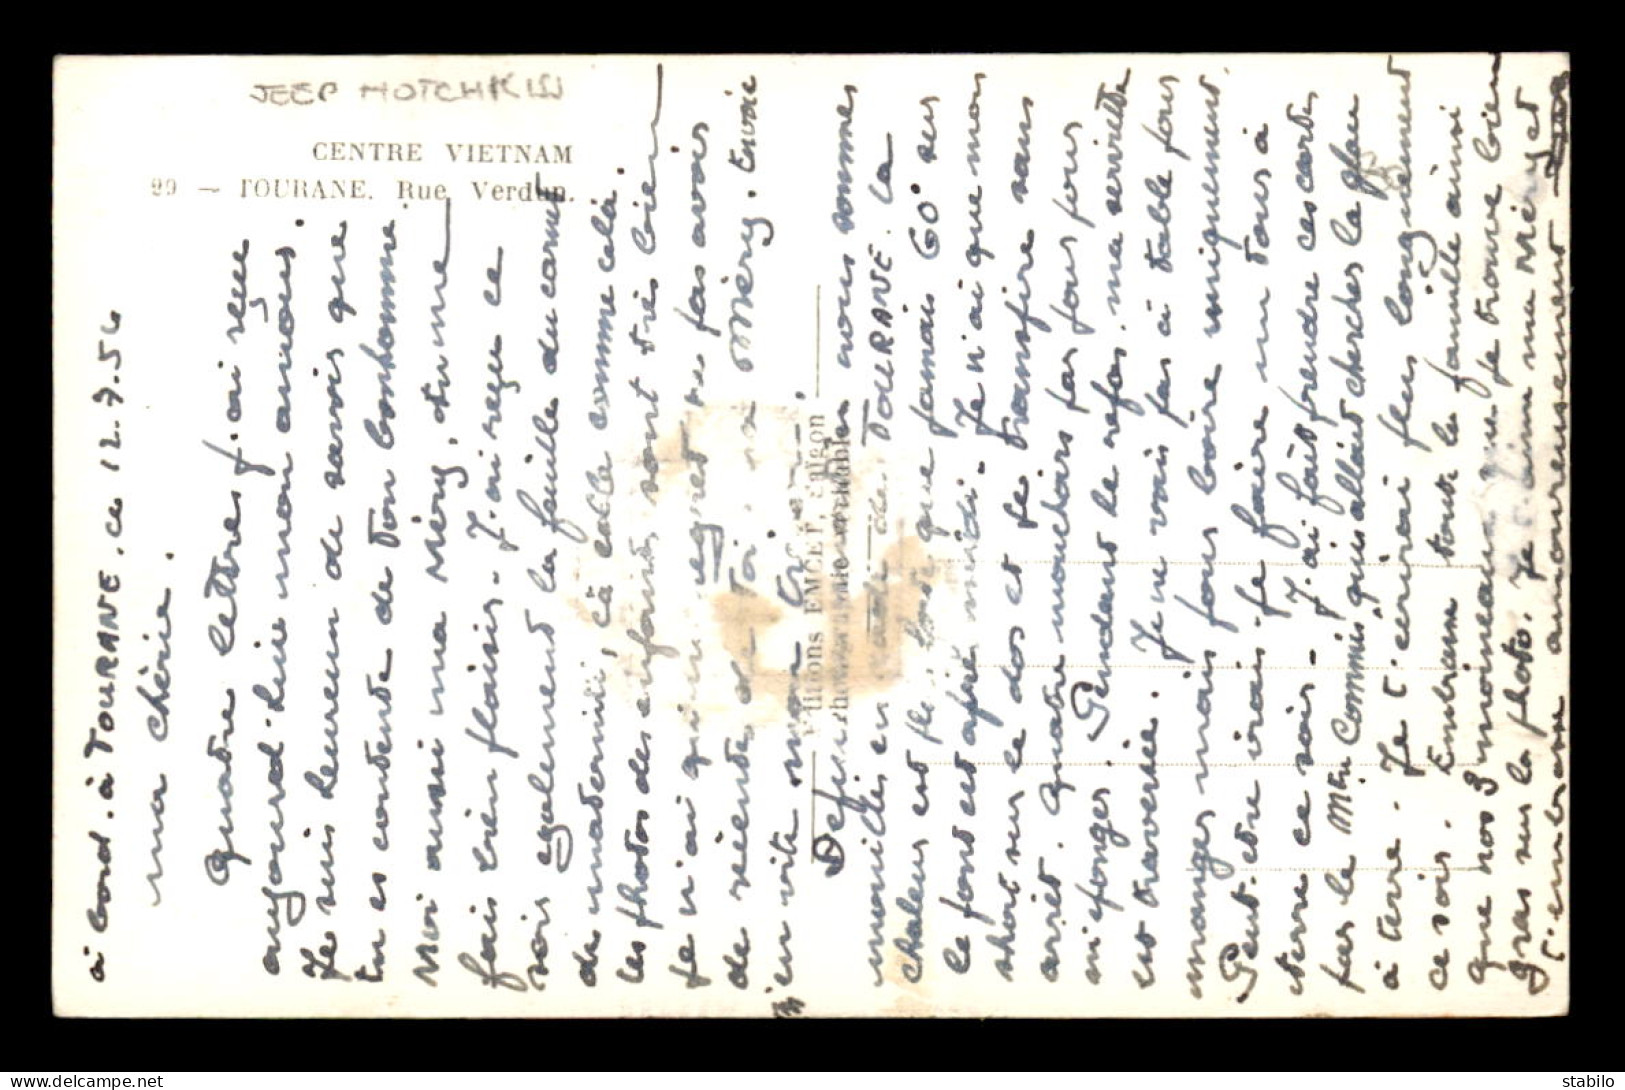 JEEP HOTCHKISS
CENTRE VIETNAM
99 — TOURANE. Rue Verdun.
Editions EMCEP, Saïgon
à bord. à TOURANE. ce 12.7.54
ma chérie.
Quatre lettres j'ai reçu
aujourd'hui mon amour.
Je suis heureux de savoir que
tu es contente de ton bonhomme.
Moi aussi ma Méry, tu me
fais bien plaisir - J'ai reçu ce
soir également la feuille du carnet
de maternité, çà colle comme celà.
Les photos des enfants sont très bien
je n'ai qu'un regret ne pas avoir
de récente de toi, ma Méry. Envoie
m'en vite mon
Depuis hier nous sommes
mouillés en rade de TOURANE. La
chaleur est plus que jamais 60° sur
le pont et après midi - Je n'ai que mon
short sur le dos et je transpire sans
arrêt. Quatre mouchoirs par jour pour
m'éponger. Pendant le repas, ma serviette
est traversée. Je ne vais pas à table pour
manger mais pour boire uniquement.
Peut-être irais-je faire un tour à
terre ce soir - J'ai fait prendre ces cartes
par le Mtre Commis, qui allait chercher
à terre. Je t'écrirai plus longuement
ce soir. Embrasse toute la famille ainsi
que nos 3 moineaux que je trouve bien
gras sur la photo. Je t'aime ma Méry et
t'embrasse amoureusement